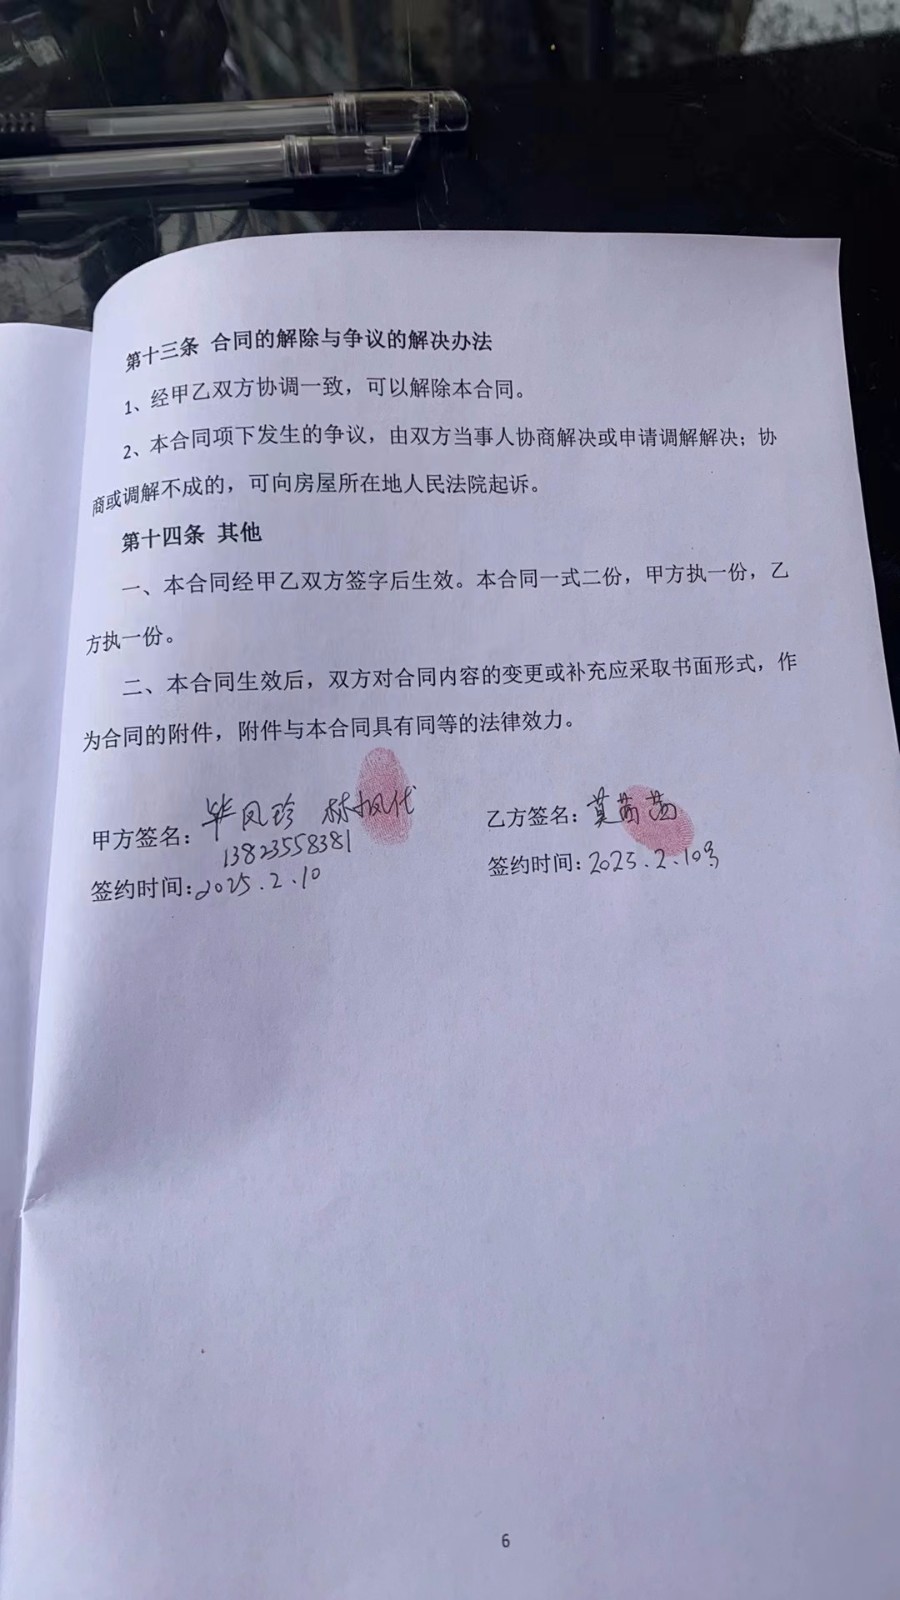 第十三条 合同的解除与争议的解决办法
1、经甲乙双方协调一致，可以解除本合同。
2、本合同项下发生的争议，由双方当事人协商解决或申请调解解决；协
商或调解不成的，可向房屋所在地人民法院起诉。
第十四条 其他
一、本合同经甲乙双方签字后生效。本合同一式二份，甲方执一份，乙
方执一份。
二、本合同生效后，双方对合同内容的变更或补充应采取书面形式，作
为合同的附件，附件与本合同具有同等的法律效力。
甲方签名：毕凤珍 林 代
13823558381
签约时间：2025.2.10
乙方签名：莫茜茜
签约时间：2025.2.10号
6